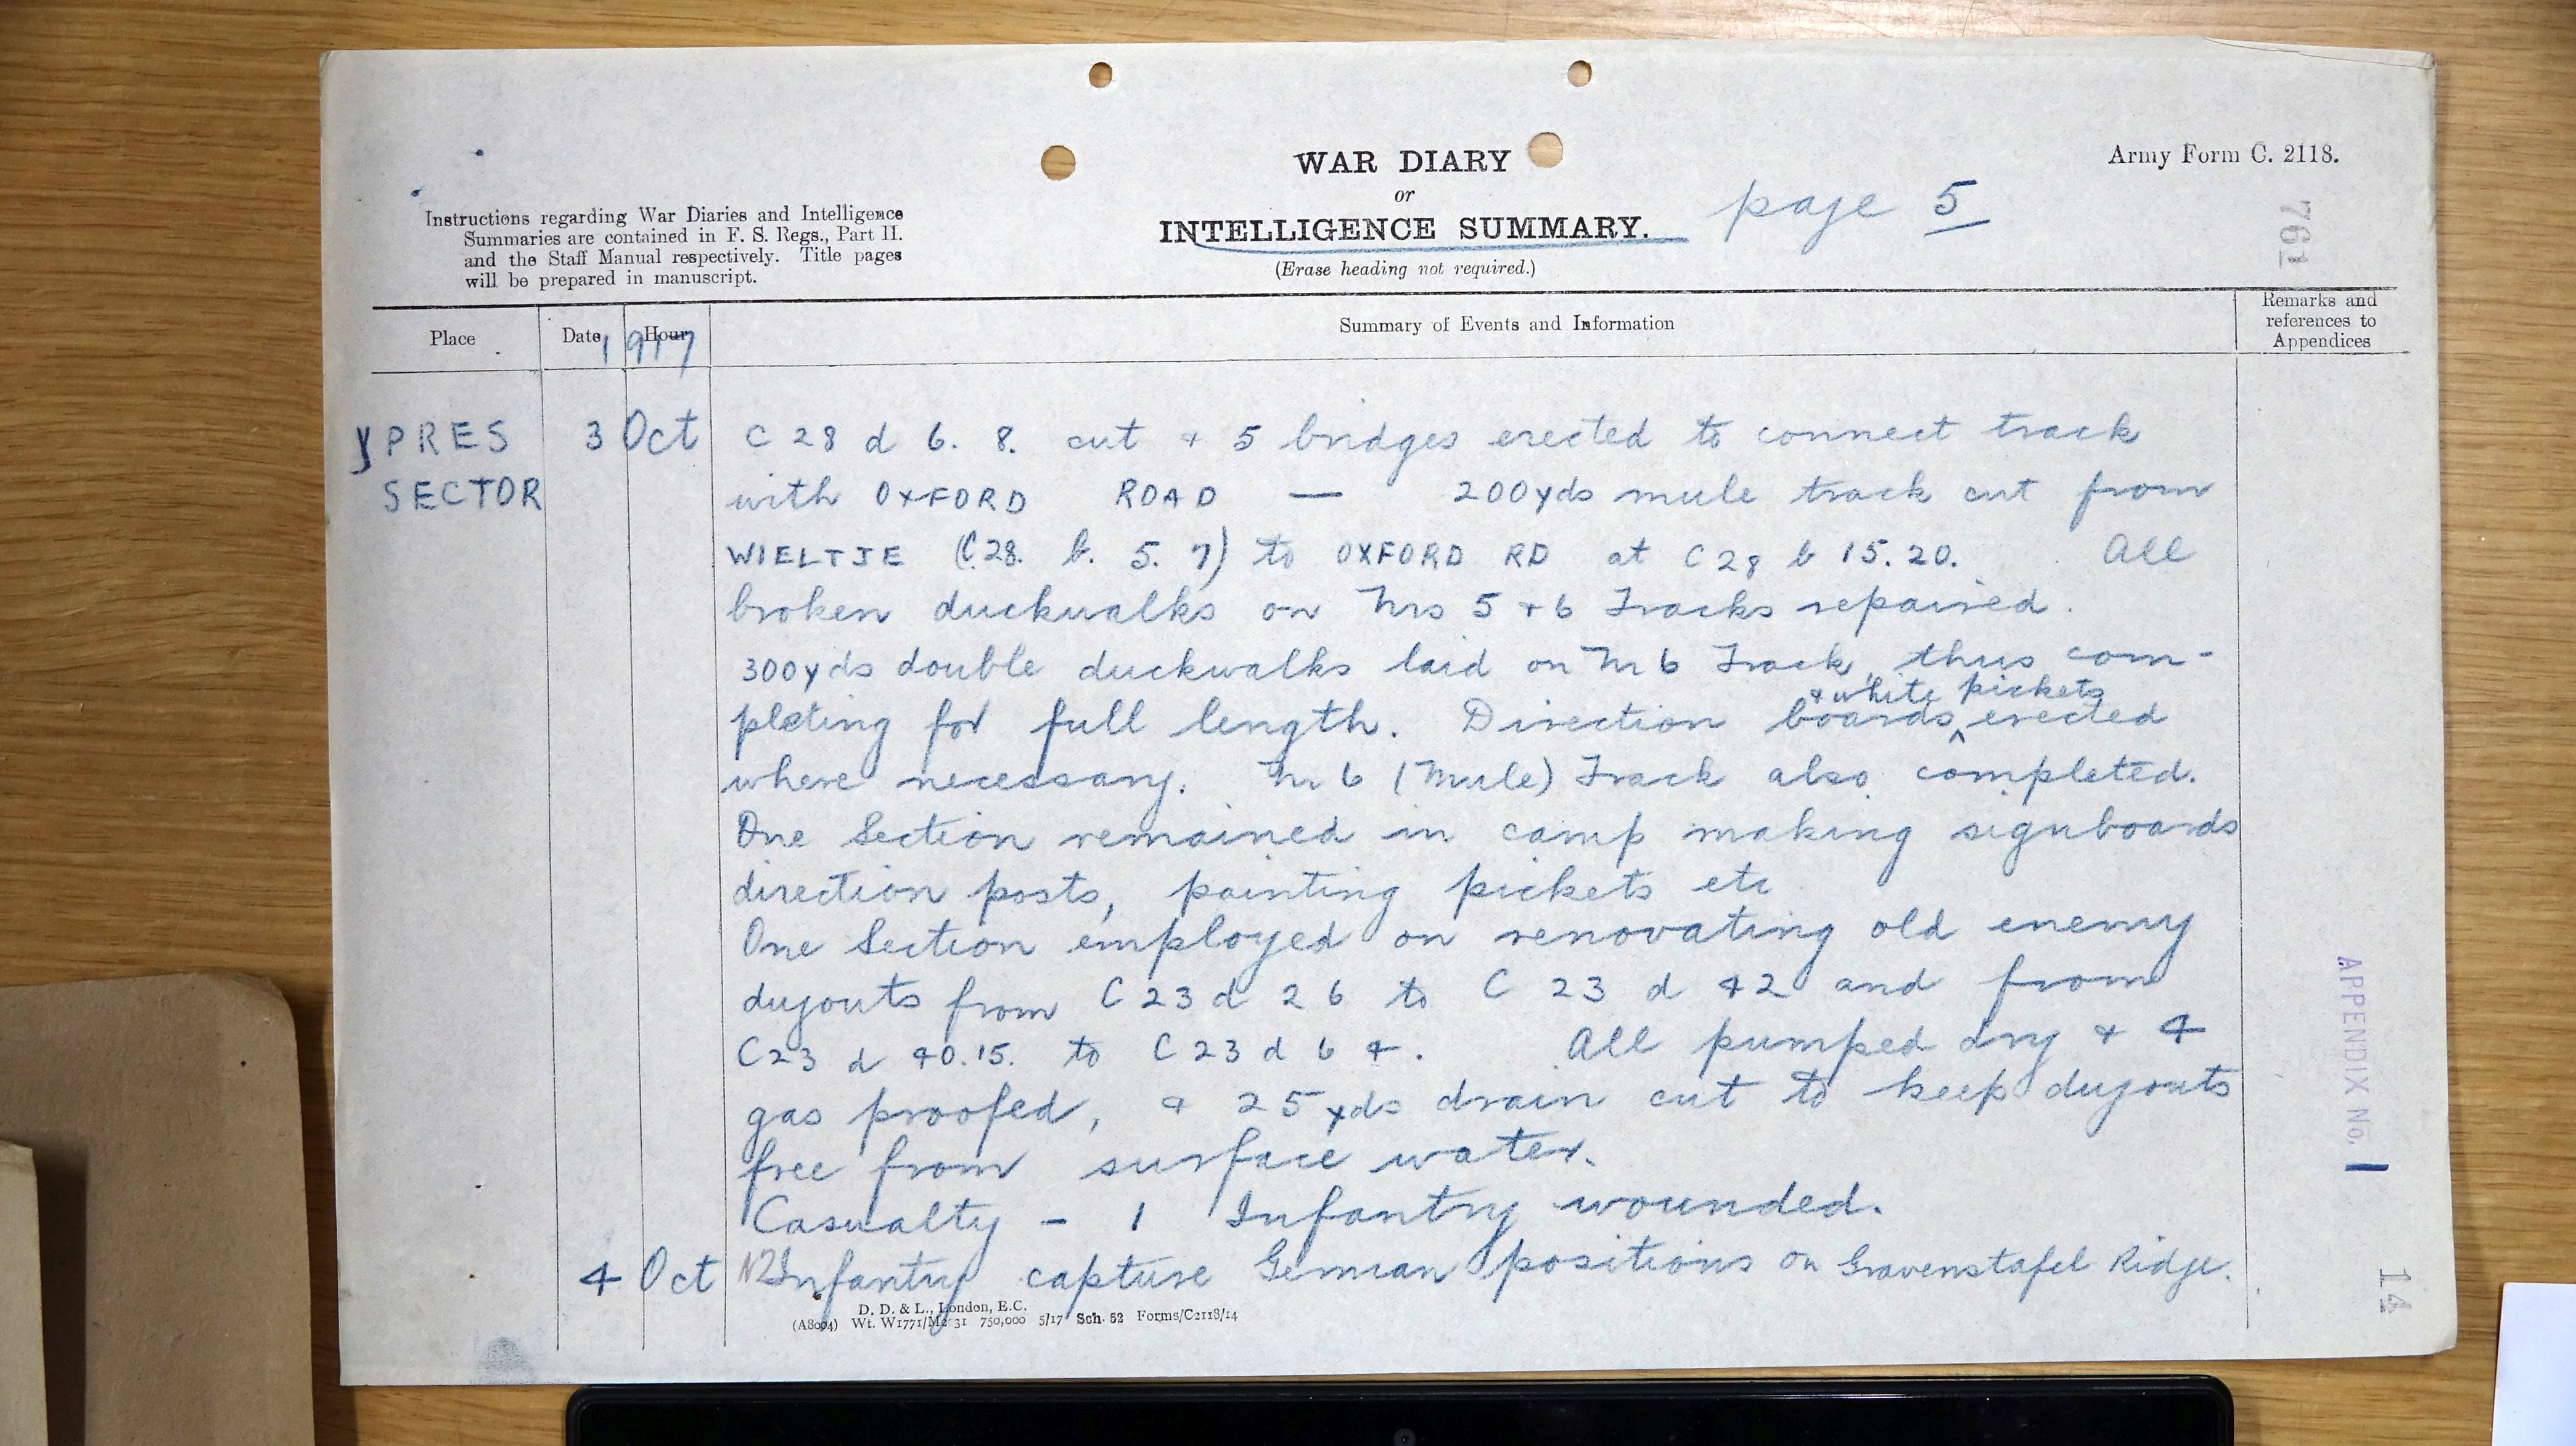 WAR DIARY
or
INTELLIGENCE SUMMARY.
(Erase heading not required.)
page 5
Army Form C. 2118.
761
Instructions regarding War Diaries and Intelligence
Summaries are contained in F. S. Regs., Part II.
and the Staff Manual respectively. Title pages
will be prepared in manuscript.
Place
Date
Hour
1917
Summary of Events and Information
Remarks and
references to
Appendices
YPRES
SECTOR
3 Oct
C 28 d 6. 8. cut & 5 bridges erected to connect track
with OXFORD ROAD — 200yds mule track cut from
WIELTJE (C.28. b. 5. 7) to OXFORD RD at C 28 b 15.20. All
broken duckwalks on Nrs 5 & 6 Tracks repaired.
300yds double duckwalks laid on Nr 6 Track, thus com-
& white pickets
pleting for full length. Direction boards ^ erected
where necessary. Nr 6 (Mule) Track also completed.
One Section remained in camp making signboards
direction posts, painting pickets etc
One Section employed on renovating old enemy
dugouts from C 23 d 2 6 to C 23 d 42 and from
C23 d 40.15. to C 23 d 6 4. All pumped dry & 4
gas proofed, & 25 yds drain cut to keep dugouts
free from surface water.
Casualty - 1 Infantry wounded.
4 Oct NZ Infantry capture German positions on Gravenstafel Ridge.
APPENDIX No. 1
14
D. D. & L., London, E.C.
(A8004) Wt. W1771/M2 31 750,000 5/17 Sch. 52 Forms/C2118/14